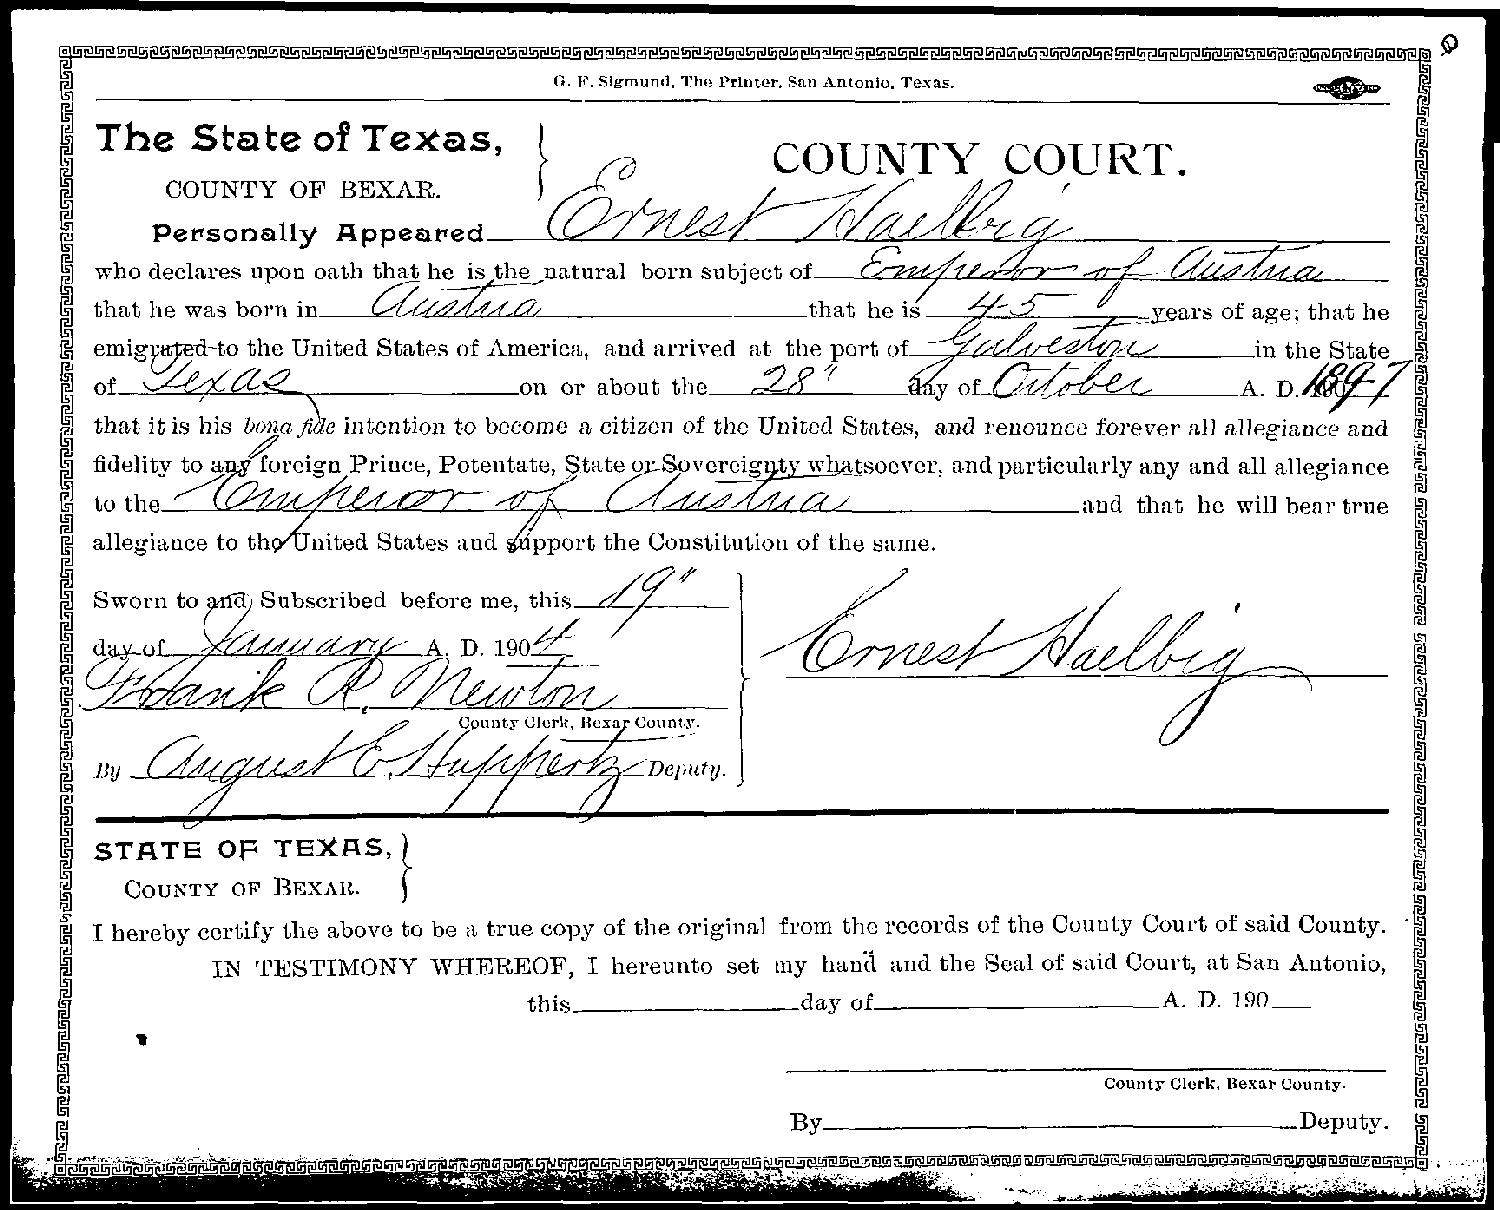 G. F. Sigmund, The Printer, San Antonio, Texas.
The State of Texas,
COUNTY OF BEXAR.
COUNTY COURT.
Personally Appeared Ernest Haelbig
who declares upon oath that he is the natural born subject of Emperor of Austria
that he was born in Austria that he is 45 years of age; that he
emigrated to the United States of America, and arrived at the port of Galveston in the State
of Texas on or about the 28" day of October A. D. 1897
that it is his bona fide intention to become a citizen of the United States, and renounce forever all allegiance and
fidelity to any foreign Prince, Potentate, State or Sovereignty whatsoever, and particularly any and all allegiance
to the Emperor of Austria and that he will bear true
allegiance to the United States and support the Constitution of the same.
Sworn to and Subscribed before me, this 19"
day of January A. D. 1904
Frank R. Newton
County Clerk, Bexar County.
By August E. Huppertz Deputy.
Ernest Haelbig
STATE OF TEXAS,
COUNTY OF BEXAR.
I hereby certify the above to be a true copy of the original from the records of the County Court of said County.
IN TESTIMONY WHEREOF, I hereunto set my hand and the Seal of said Court, at San Antonio,
this day of A. D. 190
County Clerk, Bexar County.
By Deputy.